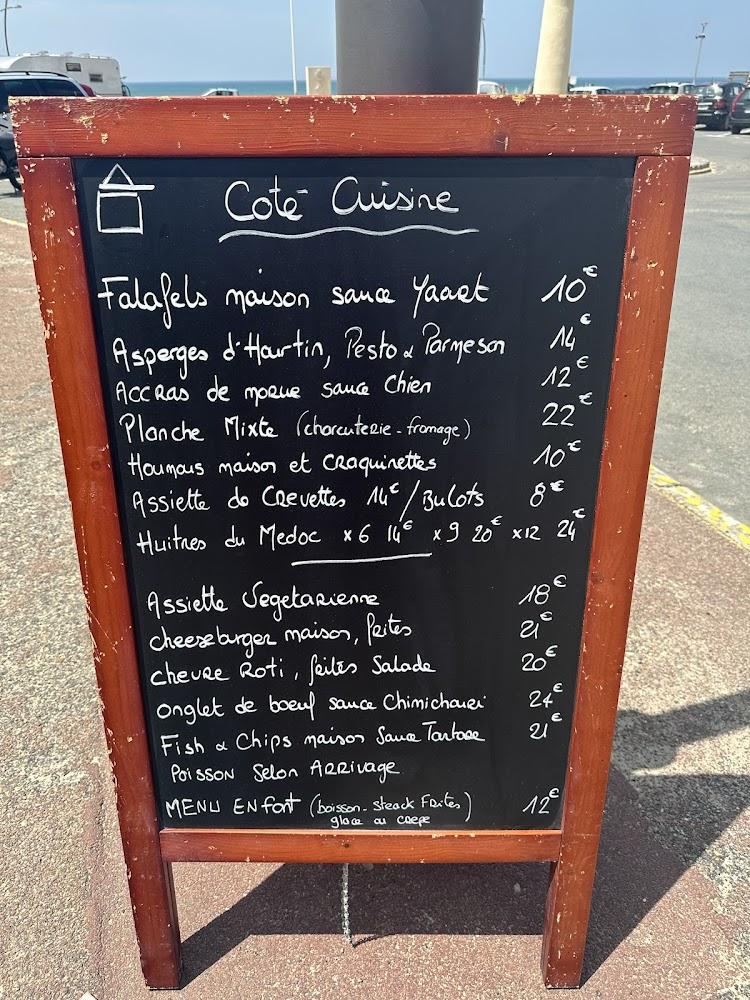 Coté Cuisine
Falafels maison sauce Yaourt 10€
Asperges d'Hourtin, Pesto & Parmesan 14€
Accras de morue sauce Chien 12€
Planche Mixte (charcuterie - fromage) 22€
Houmous maison et craquinettes 10€
Assiette de Crevettes 14€ / Bulots 8€
Huitres du Medoc x6 14€ x9 20€ x12 24€
Assiette Vegetarienne 18€
cheeseburger maison, frites 21€
chevre Roti, frites Salade 20€
onglet de boeuf sauce Chimichurri 24€
Fish & Chips maison Sauce Tartare 21€
Poisson Selon ARRivage
MENU ENfant (boisson - steack Frites) 12€
glace ou crepe